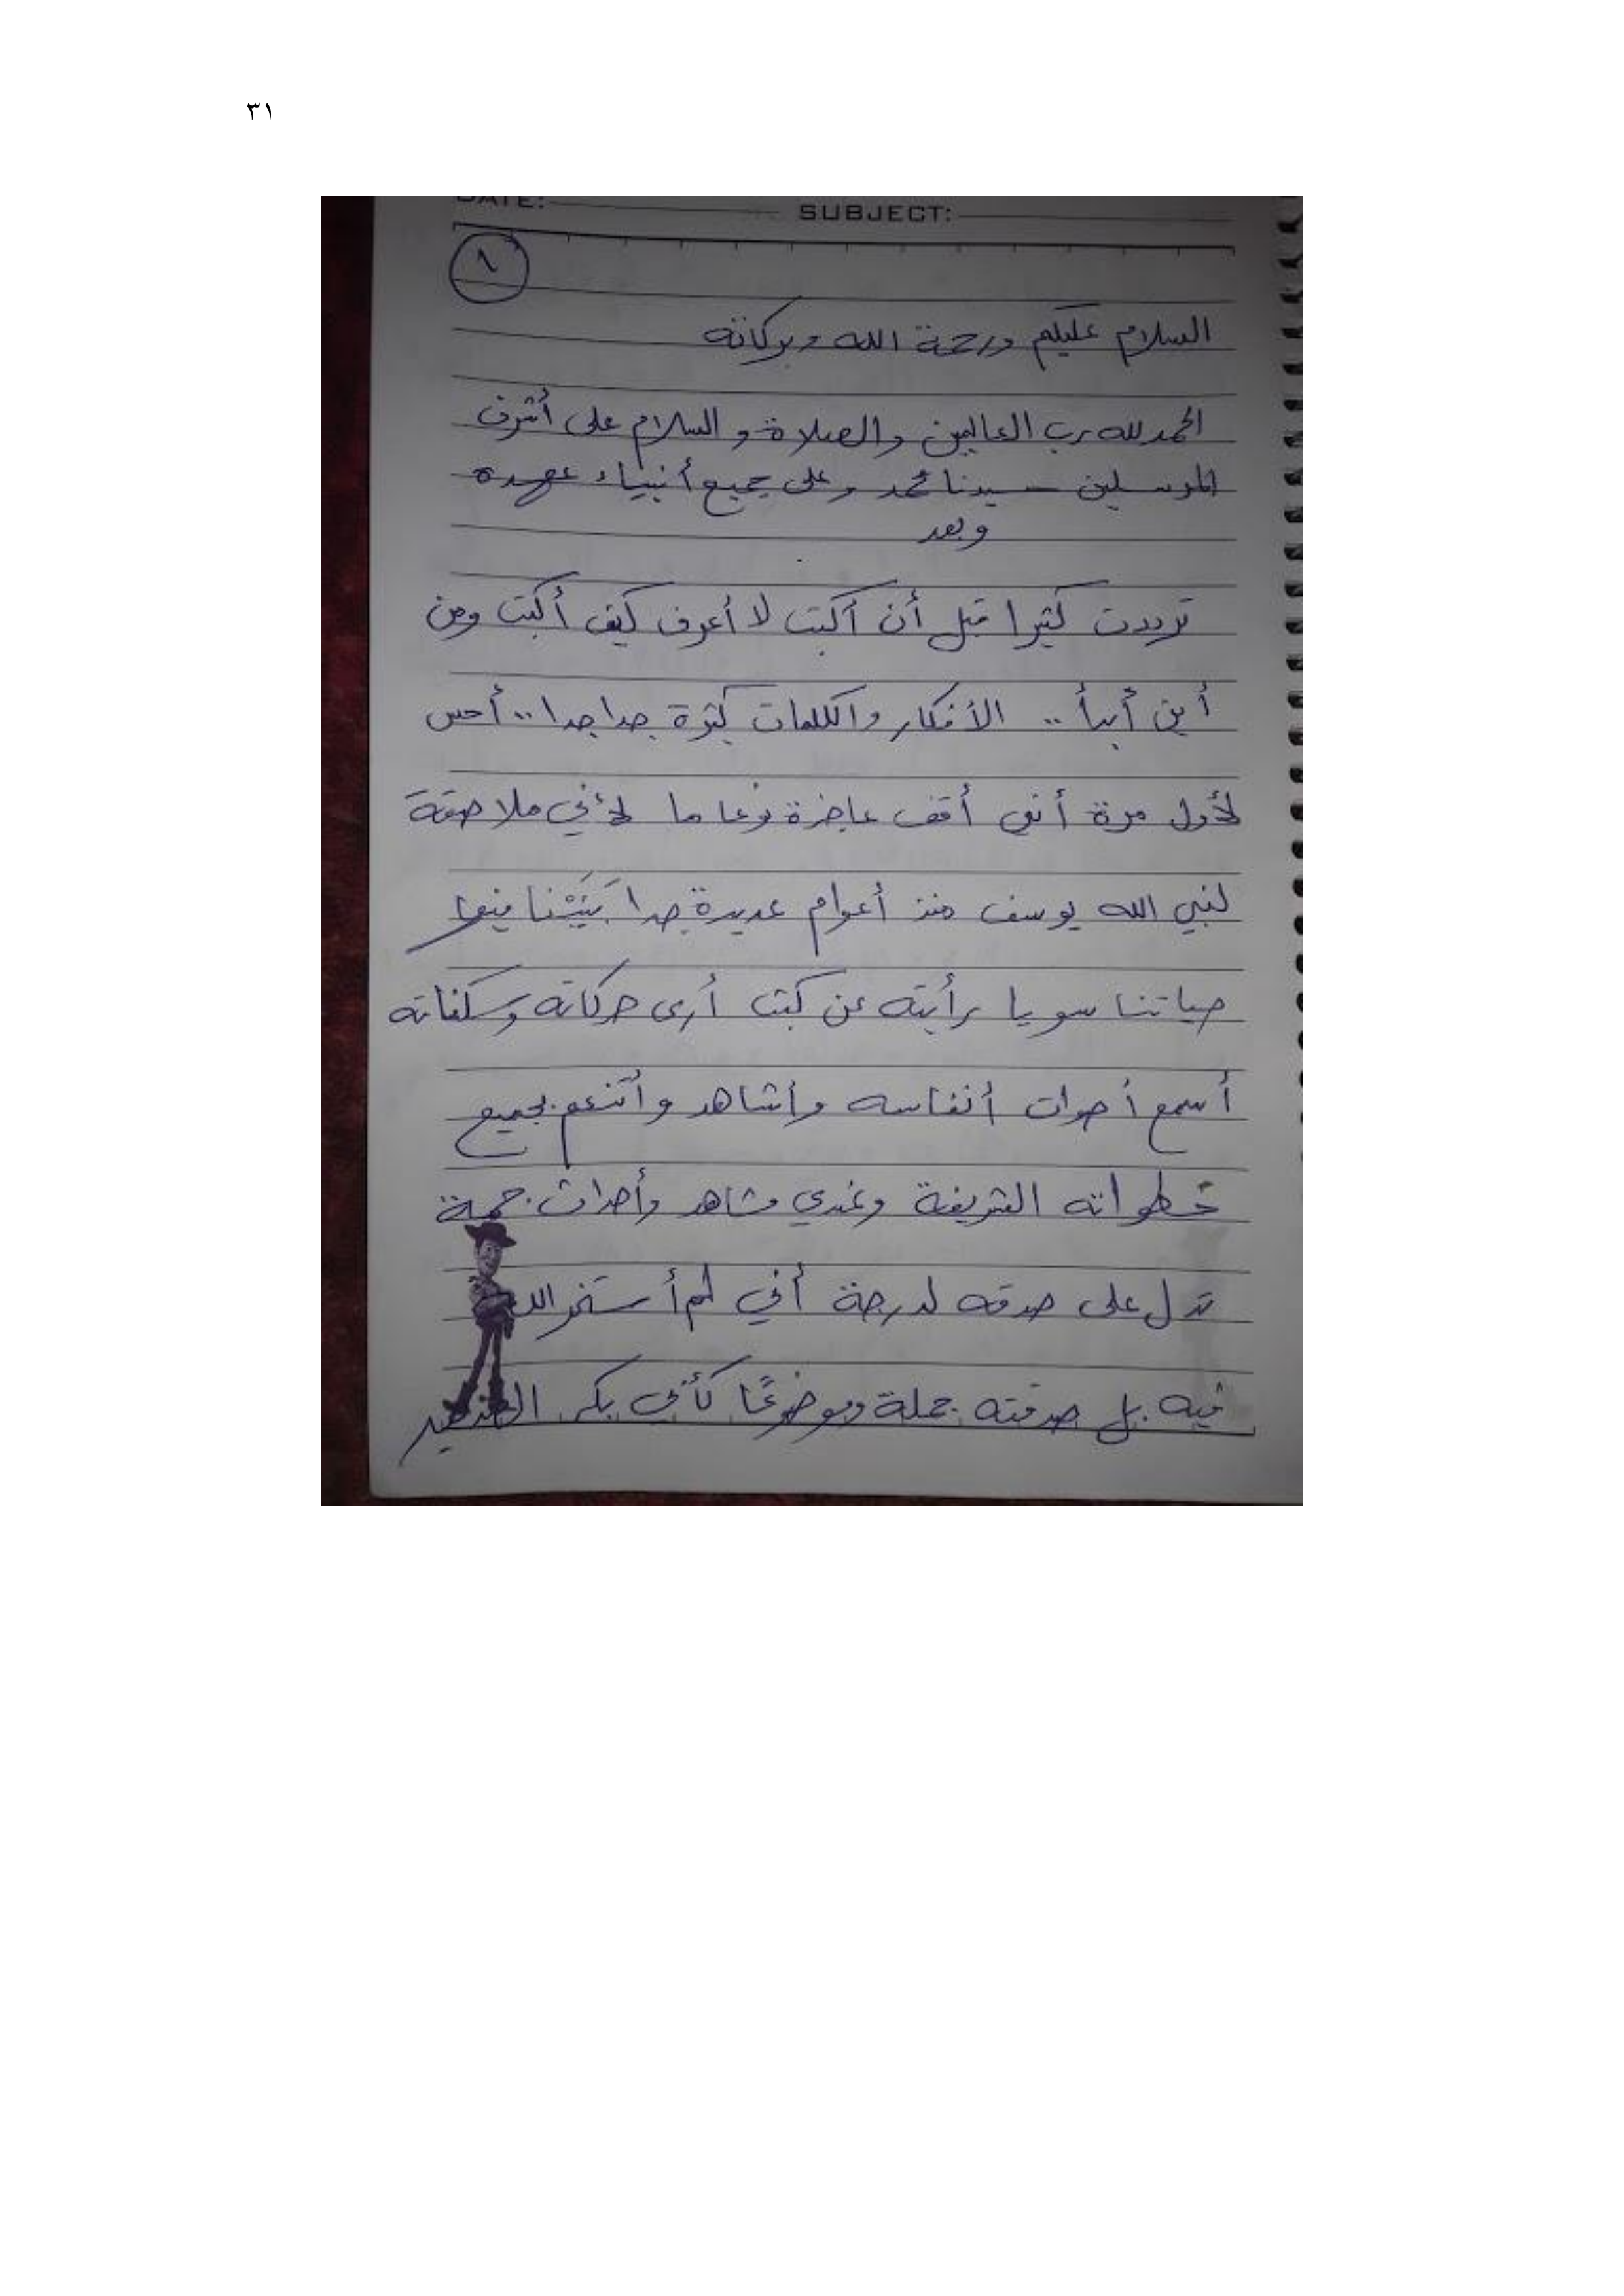 ٣١
DATE: SUBJECT:
١
السلام عليكم ورحمة الله وبركاته
الحمد لله رب العالمين والصلاة والسلام على أشرف
المرسلين سيدنا محمد وعلى جميع أنبياء عهده
وبعد
ترددت كثيرا قبل أن أكتب لا أعرف كيف أكتب ومن
أين أبدأ .. الأفكار والكلمات كثيرة جدا جدا .. أحس
لأول مرة أنني أقف عاجزة نوعا ما لأني ملاصقة
لنبي الله يوسف منذ أعوام عديدة جدا بَنَيْنا فيها
حياتنا سويا رأيته عن كثب أرى حركاته وسكناته
أسمع أصوات أنفاسه وأشاهد وأتنعم بجميع
خطواته الشريفة وعندي مشاهد وأحداث جمة
تدل على صدقه لدرجة أني لم أستخر الله
فيه بل صدقته جملة وموضوعًا كأبي بكر الصديق